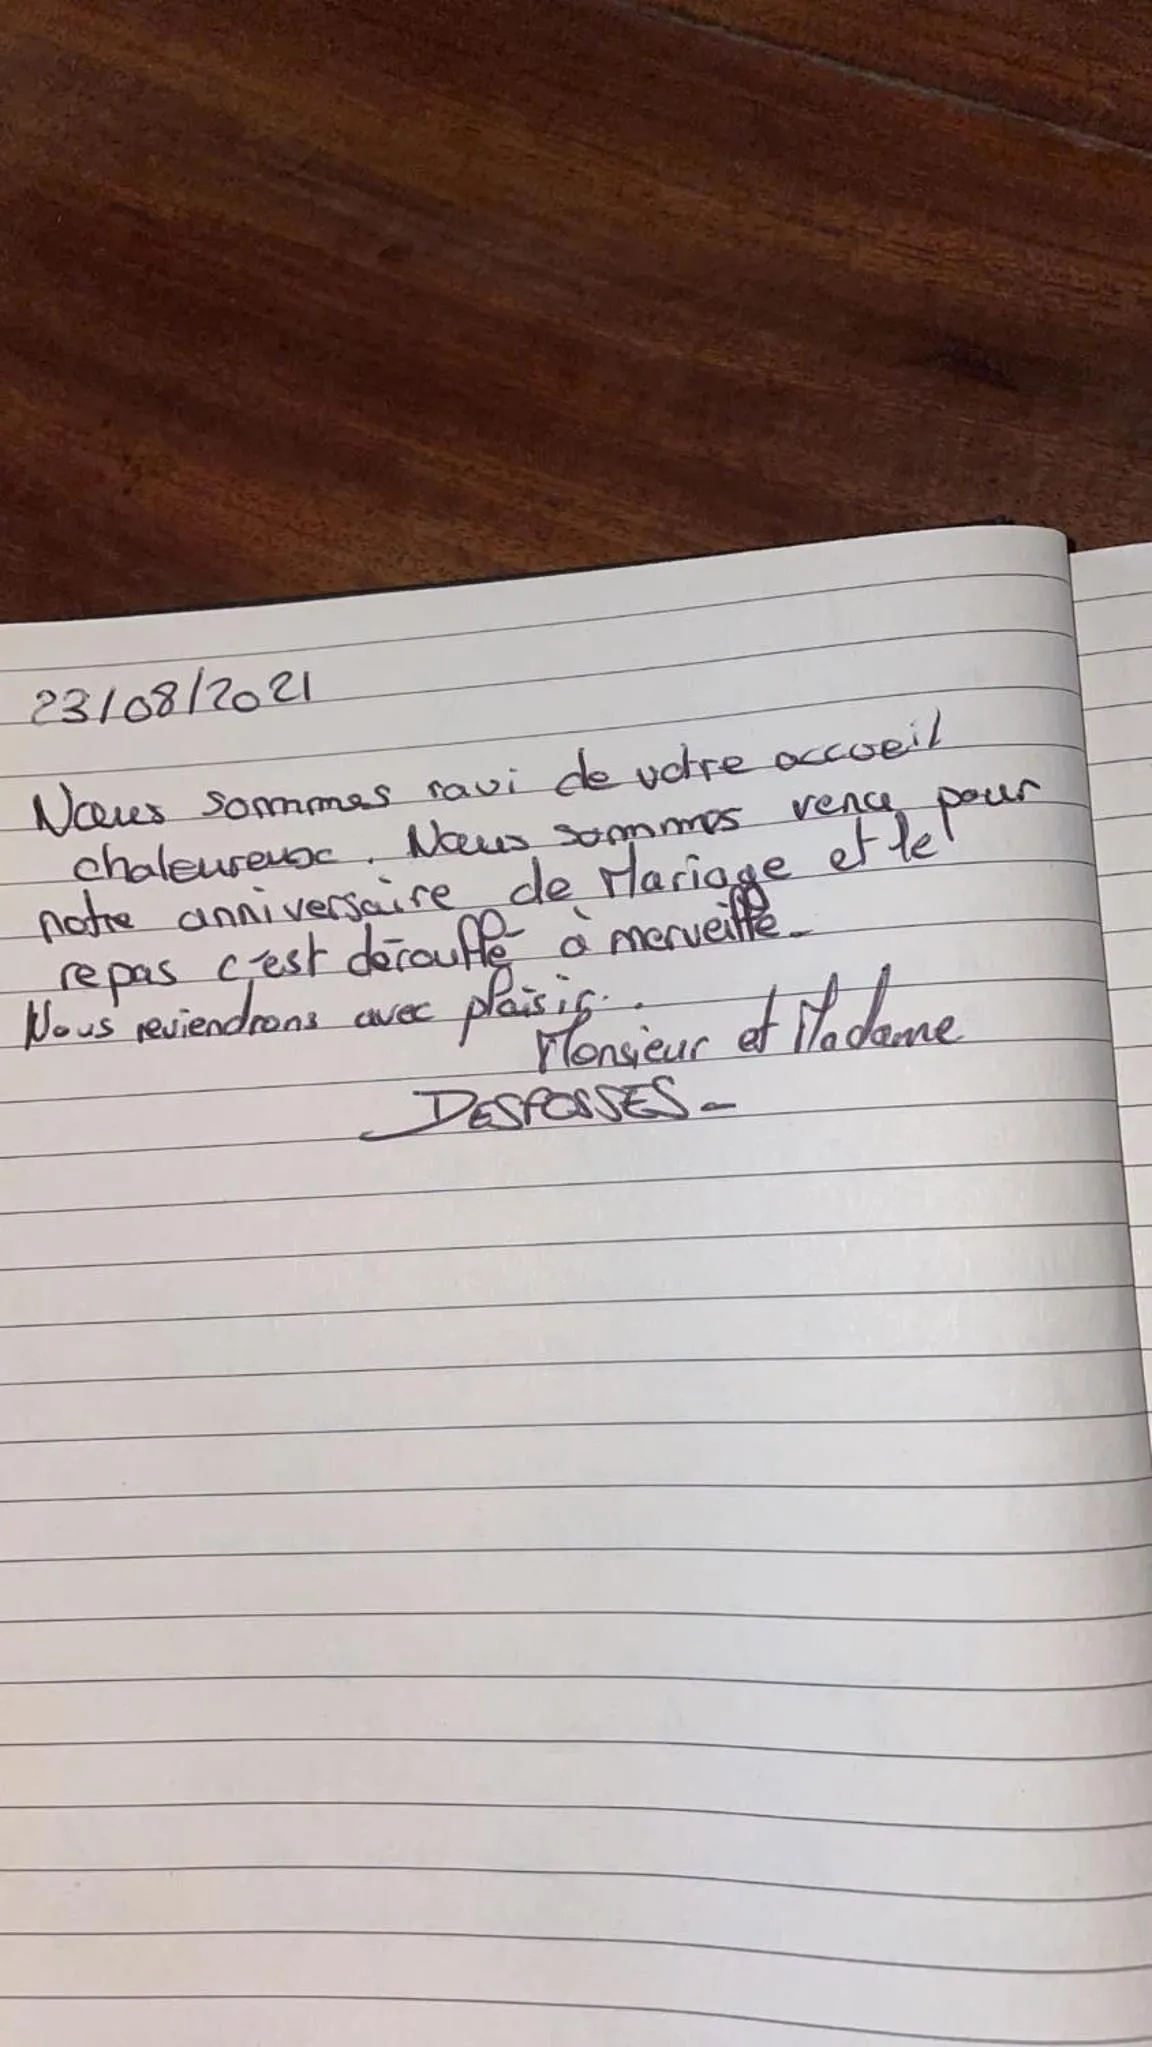 23/08/2021
Nous sommes ravi de votre accueil
chaleureux. Nous sommes venu pour
notre anniversaire de Mariage et le
repas c'est déroullé à merveille.
Nous reviendrons avec plaisir.
Monsieur et Madame
DESFOSSES.